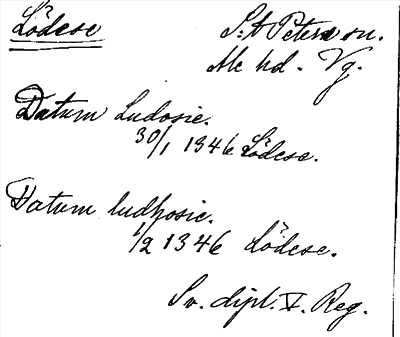 Lödese
S:t Peters sn.
Ale hd. Vg.
Datum Ludosie.
30/1 1346 Lödese.
Datum ludhosie.
1/2 1346 Lödese.
Sv. dipl. V. Reg.